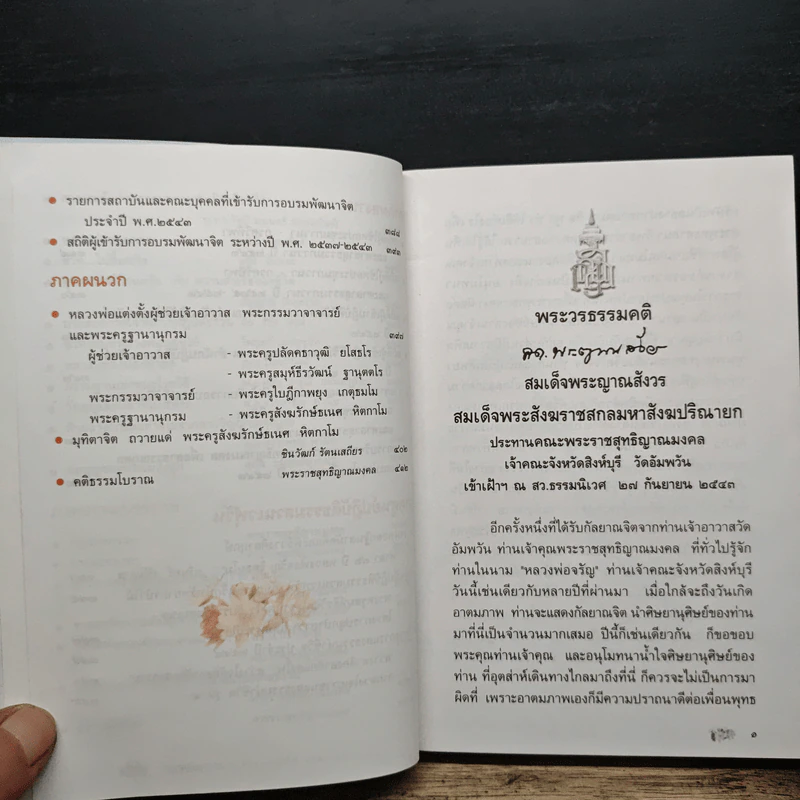 รายการสถาบันและคณะบุคคลที่เข้ารับการอบรมพัฒนาจิต
ประจำปี พ.ศ.๒๕๔๓ ๓๘๘
สถิติผู้เข้ารับการอบรมพัฒนาจิต ระหว่างปี พ.ศ. ๒๕๓๗-๒๕๔๓ ๓๙๓
ภาคผนวก
หลวงพ่อแต่งตั้งผู้ช่วยเจ้าอาวาส พระกรรมวาจาจารย์
และพระครูฐานานุกรม ๓๙๘
ผู้ช่วยเจ้าอาวาส - พระครูปลัดคธาวุฒิ ยโสธโร
- พระครูสมุห์ธีรวัฒน์ ฐานุตตโร
พระกรรมวาจาจารย์ - พระครูใบฎีกาพยุง เกตุธมโม
พระครูฐานานุกรม - พระครูสังฆรักษ์ธเนศ หิตกาโม
มุทิตาจิต ถวายแด่ พระครูสังฆรักษ์ธเนศ หิตกาโม
ชินวัฒก์ รัตนเสถียร ๔๐๒
คติธรรมโบราณ พระราชสุทธิญาณมงคล ๔๑๒
พระวรธรรมคติ
สมเด็จพระญาณสังวร
สมเด็จพระสังฆราชสกลมหาสังฆปริณายก
ประทานคณะพระราชสุทธิญาณมงคล
เจ้าคณะจังหวัดสิงห์บุรี วัดอัมพวัน
เข้าเฝ้าฯ ณ สว.ธรรมนิเวศ ๒๗ กันยายน ๒๕๔๓
อีกครั้งหนึ่งที่ได้รับกัลยาณจิตจากท่านเจ้าอาวาสวัด
อัมพวัน ท่านเจ้าคุณพระราชสุทธิญาณมงคล ที่ทั่วไปรู้จัก
ท่านในนาม "หลวงพ่อจรัญ" ท่านเจ้าคณะจังหวัดสิงห์บุรี
วันนี้เช่นเดียวกับหลายปีที่ผ่านมา เมื่อใกล้จะถึงวันเกิด
อาตมภาพ ท่านจะแสดงกัลยาณจิต นำศิษยานุศิษย์ของท่าน
มาที่นี่เป็นจำนวนมากเสมอ ปีนี้ก็เช่นเดียวกัน ก็ขอขอบ
พระคุณท่านเจ้าคุณ และอนุโมทนาน้ำใจศิษยานุศิษย์ของ
ท่าน ที่อุตส่าห์เดินทางไกลมาถึงที่นี่ ก็ควรจะไม่เป็นการมา
ผิดที่ เพราะอาตมภาพเองก็มีความปราถนาดีต่อเพื่อนพุทธ
๑